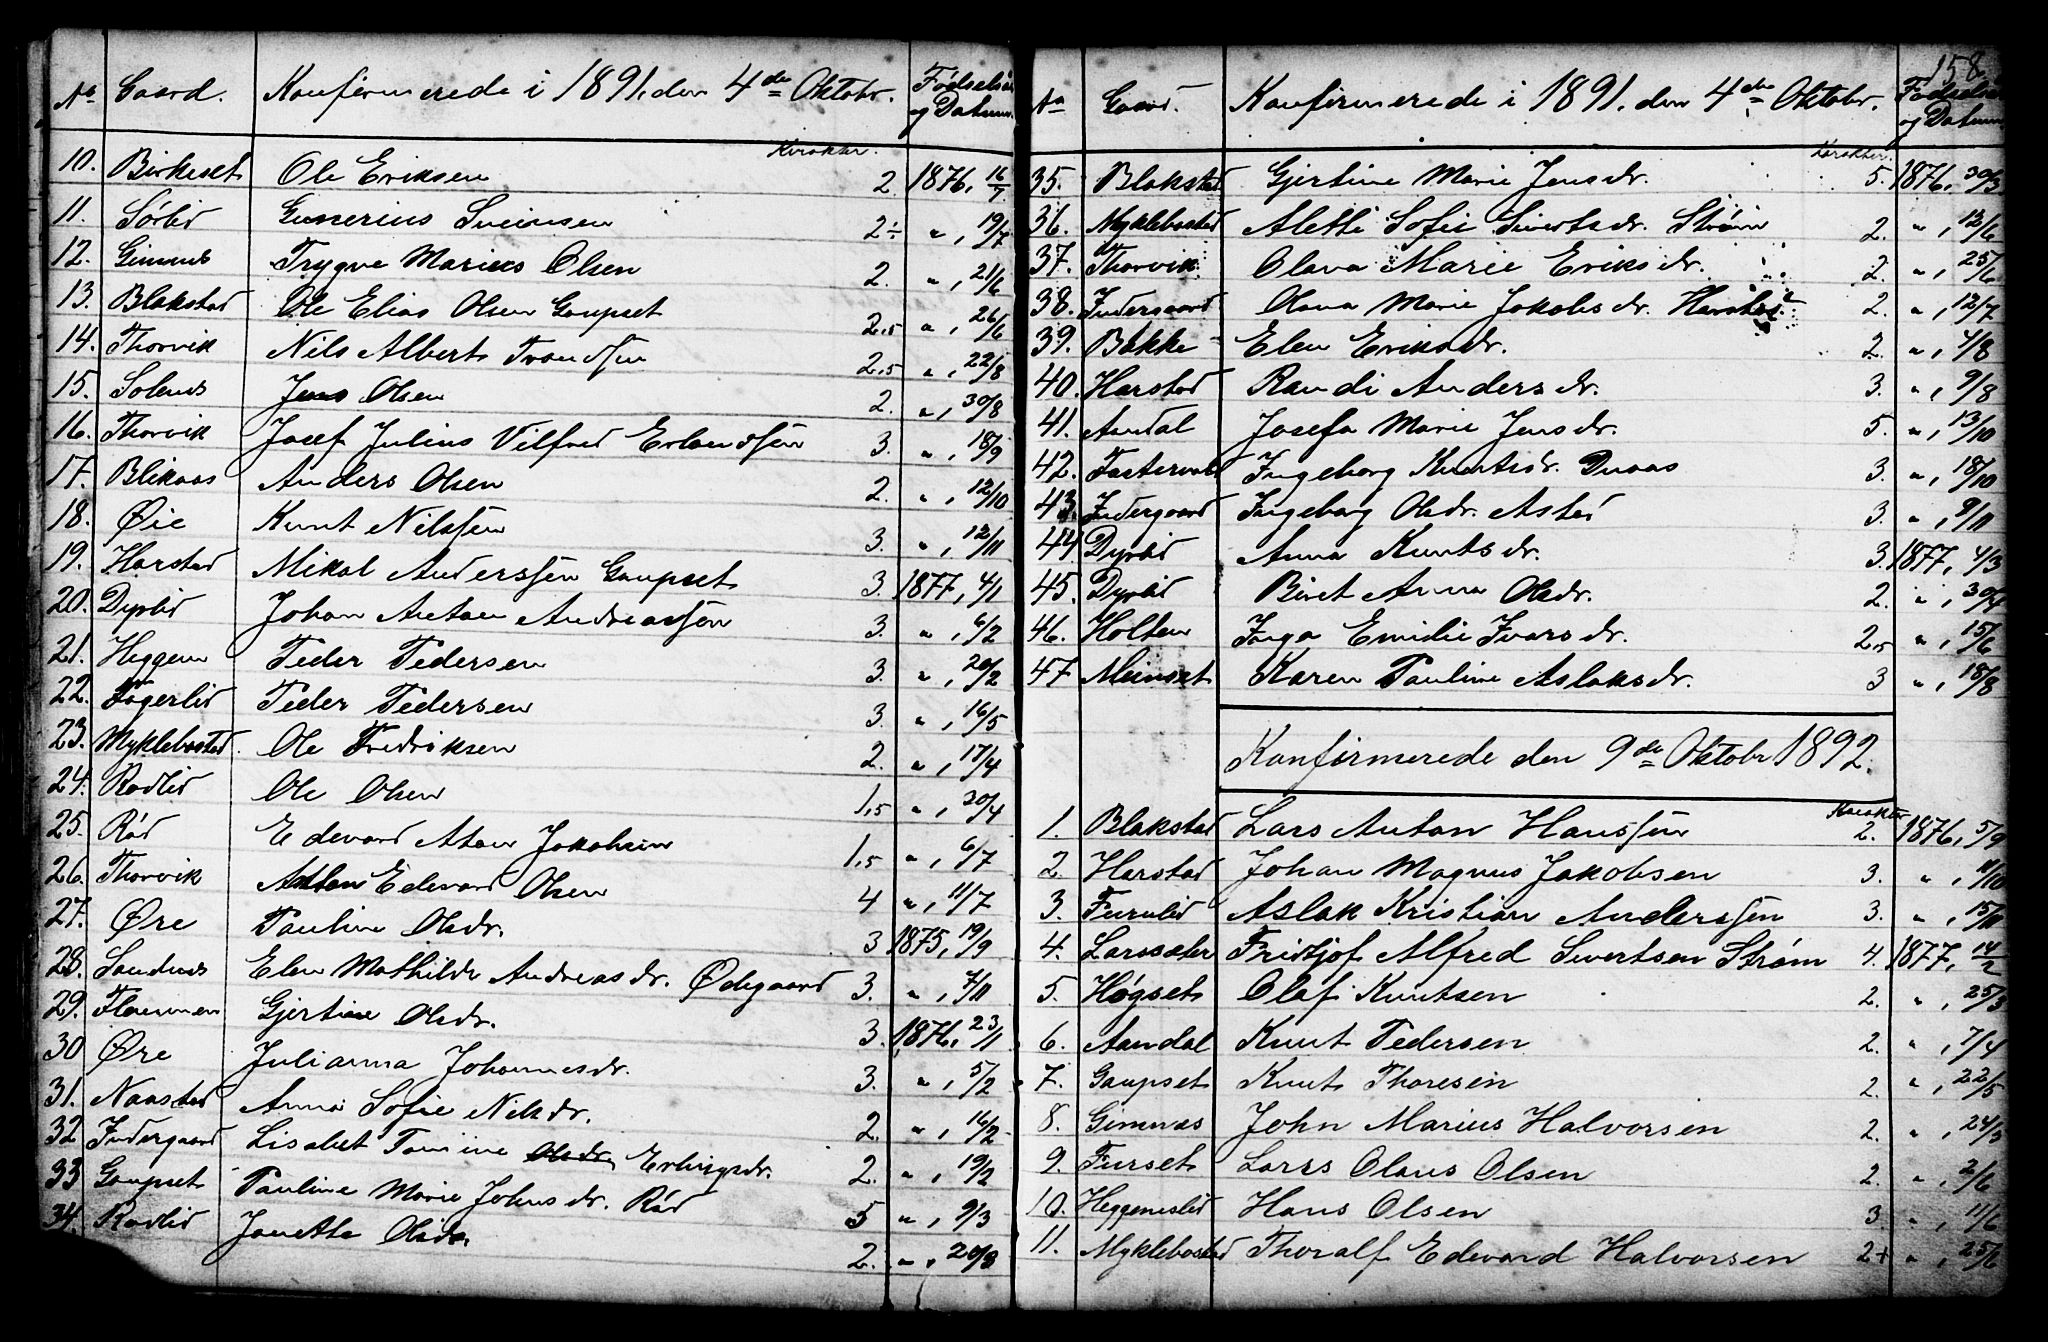 No Gaard. Konfirmerede i 1891, den 4de Oktobr. Fødselsaar og Datum.
Karakter.
10. Birkeset Ole Eriksen 2. 1876, 16/7
11. Sørlid Gunerius Sveinsen 2÷ " , 19/7
12. Gimnes Trygve Marius Olsen 2. " , 21/6
13. Blakstad Ole Elias Olsen Gaupset 2,5 " , 26/6
14. Thorvik Nils Albert Trondssen 2,5 " , 22/8
15. Solnes Jens Olsen 2. " , 30/8
16. Thorvik Josef Julius Vilfred Erlandssen 3. " , 18/9
17. Blikaas Anders Olsen 2. " , 12/10
18. Øie Knut Nilssen 3. " , 12/11
19. Harstad Mikal Anderssen Gaupset 3. 1877, 4/1
20. Dyrlid Johan Anton Andreassen 3. " , 6/2
21. Heggem Peder Pedersen 3. " , 20/2
22. Fagerlid Peder Pedersen 3. " , 16/5
23. Myklebostad Ole Fredriksen 2. " , 17/4
24. Rødlid Ole Olsen 1,5 " , 30/4
25. Rød Edevard Aton Jakobsen 1,5 " , 6/7
26. Thorvik Anton Edevard Olsen 4 " , 11/7
27. Øre Pauline Olsdr. 3 1875, 19/9
28. Sandnes Elen Mathilde Andreasdr. Ødegaard 3. " , 7/11
29. Flemmen Gjertine Olsdr. 3. 1876, 23/1
30 Øre Julianna Johannesdr. 3. " , 5/2
31. Naastad Anna Sofie Nilsdr. 2. " , 16/2
32 Indergaard Lisabet Tomine Olsdr. Erlingsdr. 2. " , 19/2
33 Gaupset Pauline Marie Johnsdr. Rød 5 " , 9/3
34. Rødlid Janette Olsdr. 2. " , 20/3
158
No Gaard. Konfirmerede i 1891. den 4de Oktobr. Fødselsaar og Datum.
Karakter.
35. Blakstad Gjertine Marie Jensdr. 5. 1876, 30/3
36. Myklebostad Aletti Sofie Sivertsdr. Strøm 2. " , 12/6
37. Thorvik Olava Marie Eriksdr. 2. " , 25/6
38. Indergaard Olava Marie Jakobsdr. Harstad 2. " , 12/7
39. Bakke Elen Eriksdr. 2. " , 4/8
40. Harstad Randi Andersdr. 3. " , 9/8
41. Aandal Josefa Marie Jensdr. 5. " , 13/10
42. Fastervold Ingeborg Knutsdr. Duaas 3. " , 18/10
43. Indergaard Ingeborg Olsdr. Astad 3. " , 9/11
44. Dyrlid Anna Knutsdr. 3. 1877, 4/3
45. Dyrlid Beret Anna Olsdr. 2. " , 30/4
46. Holten Inga Emilie Ivarsdr. 2,5 " , 15/6
47 Meisset Karen Pauline Aslaksdr. 3 " , 18/8
Konfirmerede den 9de Oktobr 1892.
Karakter
1. Blakstad Lars Anton Hanssen 2. 1876, 5/9
2 Harstad Johan Magnus Jakobsen 3. " , 11/10
3. Furulid Aslak Kristian Anderssen 3. " , 15/11
4. Larssæter Fridtjof Alfred Sivertsen Strøm 4. 1877, 14/2
5. Høgset Olaf Knutsen 2. " , 25/3
6. Aandal Knut Pedersen 2. " , 7/4
7. Gaupset Knut Thoresen 2. " , 22/5
8. Gimnæs John Marius Halvorsen 2. " , 24/3
9. Furset Lars Olaus Olsen 2. " , 2/6
10. Heggemslid Hans Olsen 3 " , 11/6
11. Myklebostad Thoralf Edevard Halvorsen 2+ " , 25/6